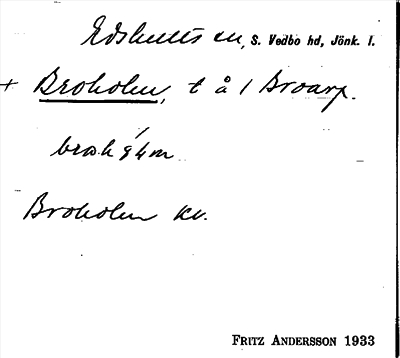 Edshults sn, S. Vedbo hd, Jönk. l.
+ Broholm, t å 1 Broarp.
Broholm kv.
FRITZ ANDERSSON 1933